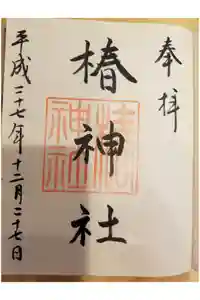 奉拝
椿神社
平成二十七年十二月二十七日